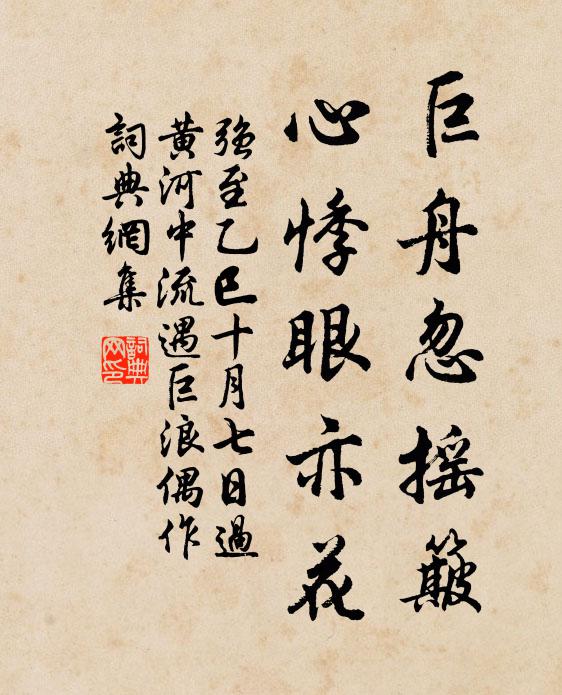 巨舟忽摇簸
心悸眼亦花
强至乙巳十月七日過
黄河中流遇巨浪偶作
詞典網集
詞典网印